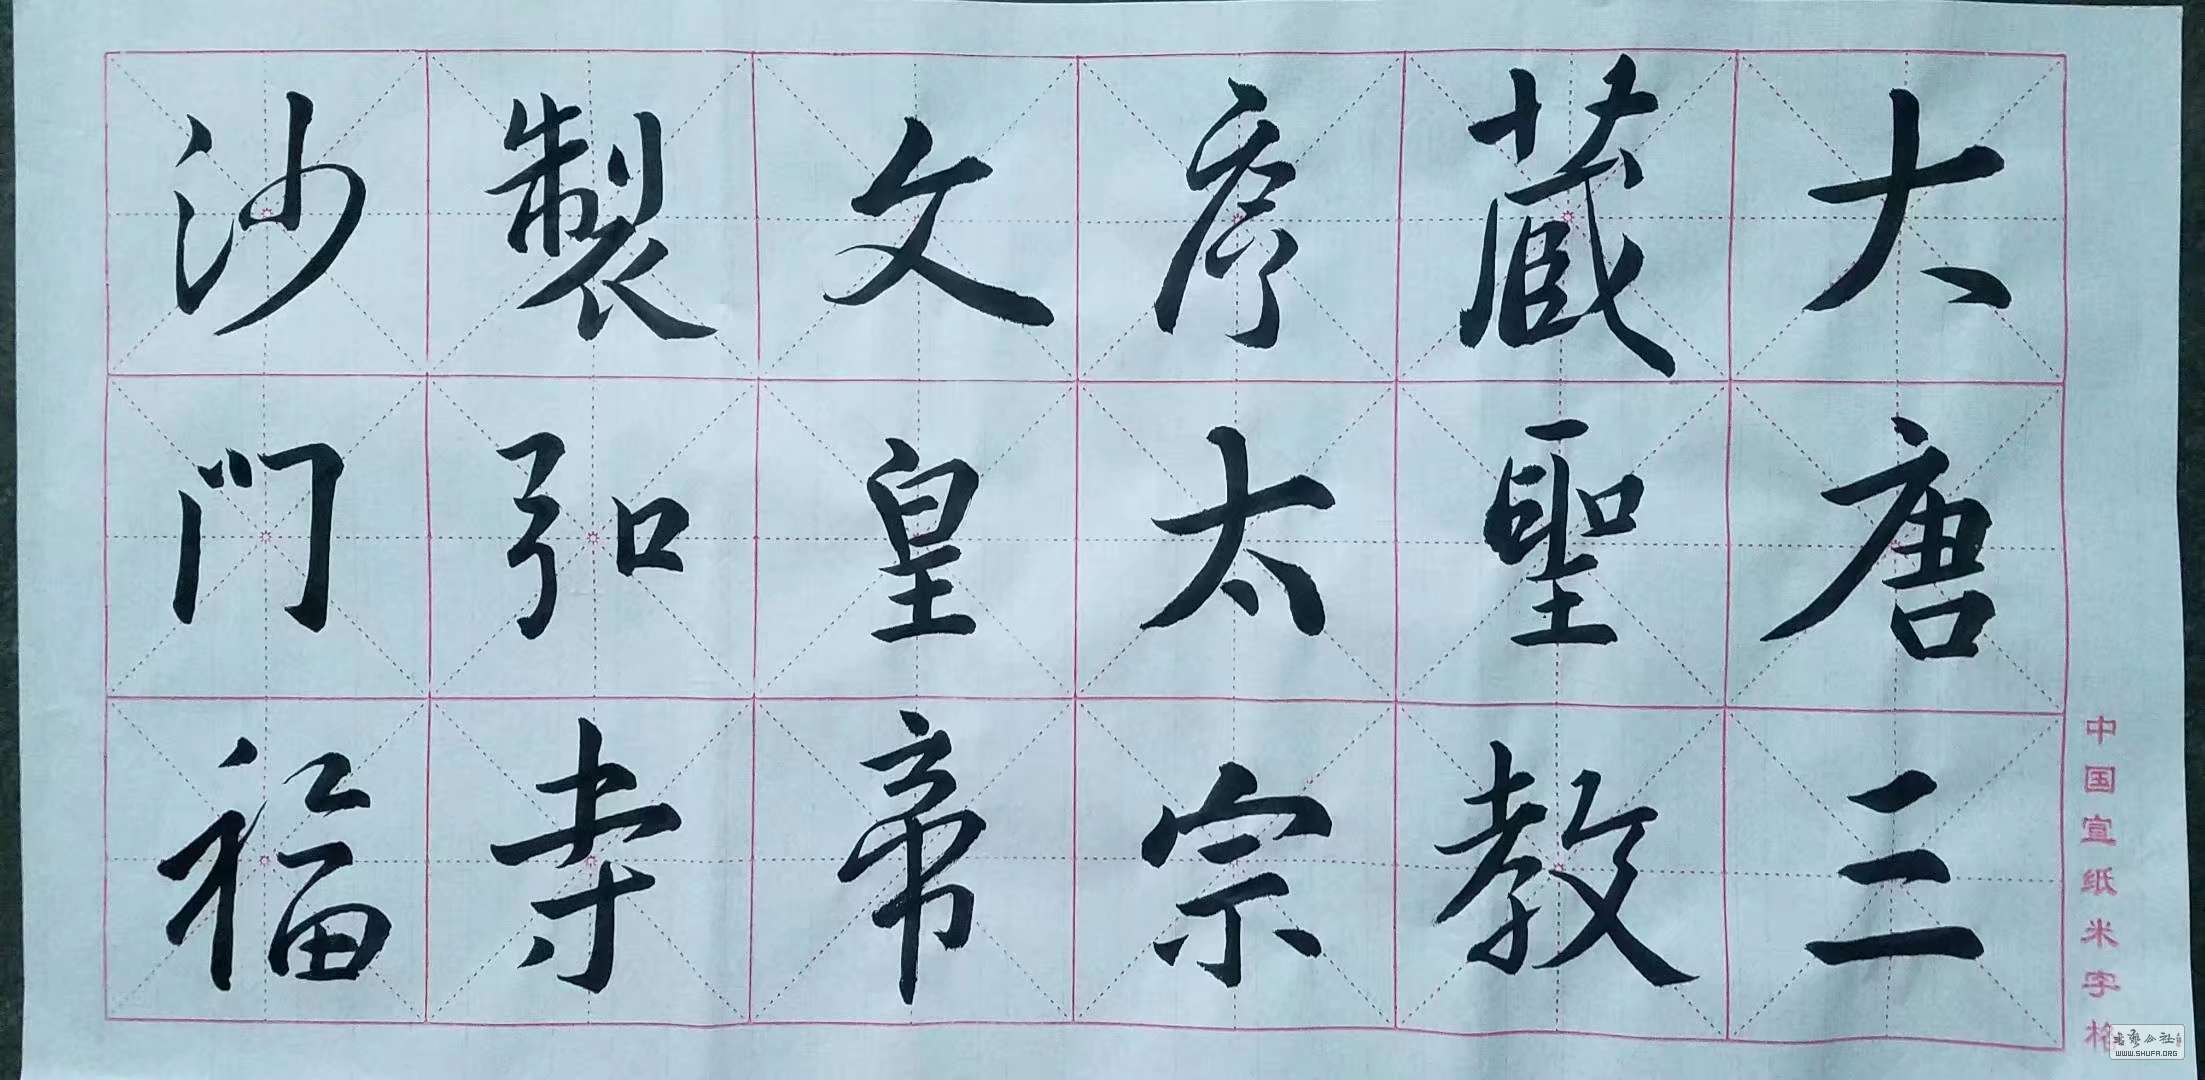 大唐三
藏聖教
序太宗
文皇帝
製弘寺
沙门福
中国宣纸米字格
书艺公社
WWW.SHUFA.ORG